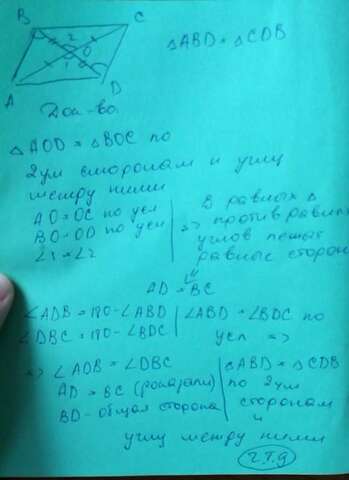 B C
2
O
1
A D
△ABD = △CDB
Док-во.
△AOD = △BOC по
2ум сторонам и углу
между ними
AO = OC по усл
BO = OD по усл
∠1 = ∠2
В равных △
=> против равных
углов лежат
равные сторон
AD = BC
∠ADB = 180 - ∠ABD
∠DBC = 180 - ∠BDC
∠ABD = ∠BDC по
усл =>
=> ∠ADB = ∠DBC
AD = BC (доказали)
BD - общая сторона
△ABD = △CDB
по 2ум
сторонам
и
углу между ними
ч.т.д